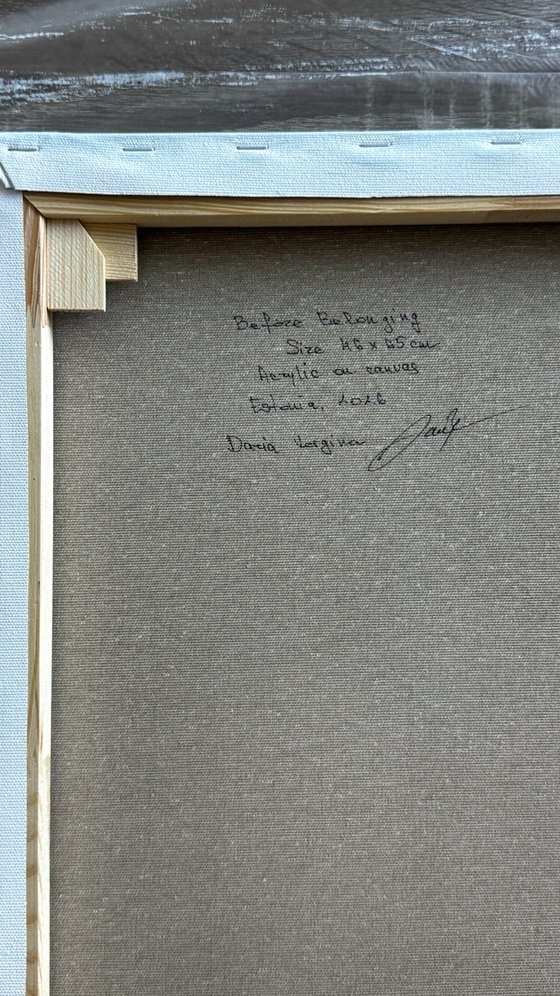 Before Belonging
Size 46 x 65 cm
Acrylic on canvas
Estonia, 2026
Daria